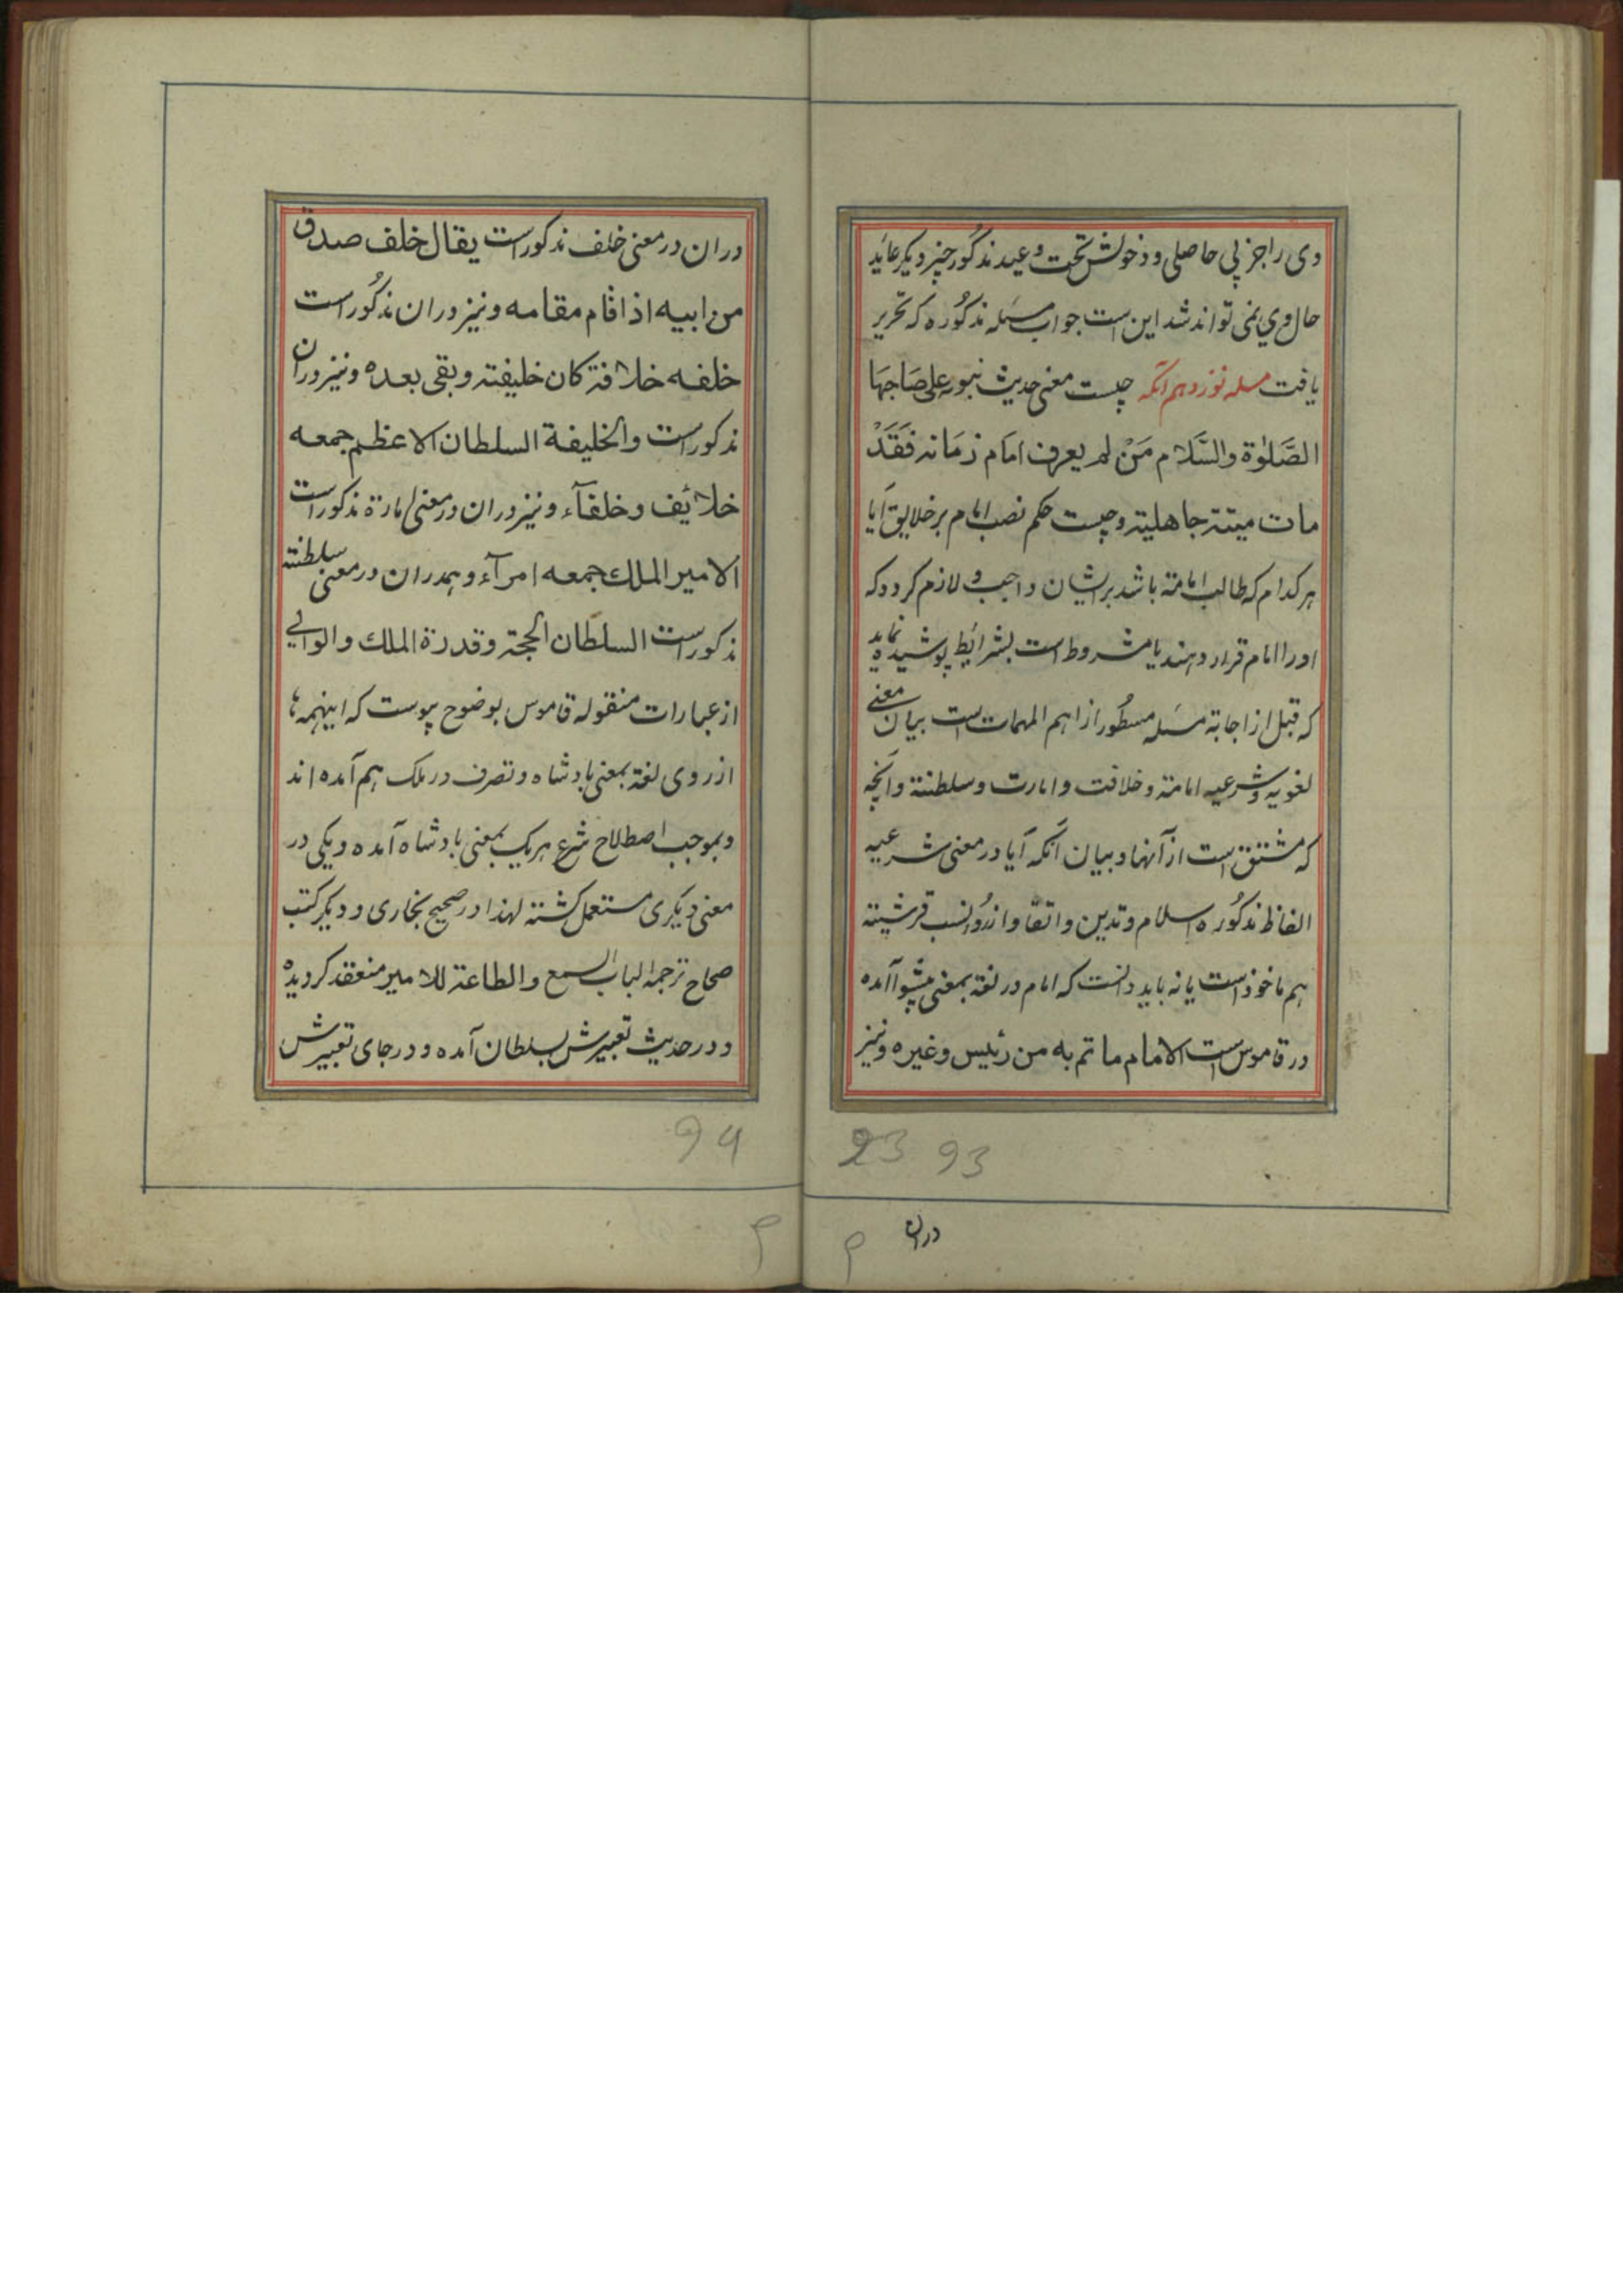 وی را جز بی حاصلی و دخولش تحت وعید مذکور چیز دیکر عاید
حال وی نمی تواند شد این است جواب مسئله مذکوره که تحریر
یافت مسله نوزدهم آنکه چیست معنی حدیث نبویه علی صاحبها
الصَّلوٰة والسَّلام مَنْ لم یعرف امام زمَانه فَقَدْ
مات میتته جاهلیته وچیست حکم نصب امام بر خلایق آیا
هر کدام که طالب امامته باشد بر ایشان واجب و لازم کردد که
او را امام قرار دهند یا مشروط است بشرائط پوشیده نماید
که قبل از اجابة مسئله مسطور از اهم المهمات است بیان معنی
لغویه و شرعیه امامته و خلافت و امارت و سلطنته و آنچه
که مشتق است از آنها و بیان آنکه آیا در معنی شرعیه
الفاظ مذکوره اسلام و تدین و اتقا و از رو نسب قرشیته
هم ماخوذ است یا نه باید دانست که امام در لغة بمعنی پیشوا آمده
در قاموس است الامام ما تم به من رئیس وغیره ونیز
23 93
دران
دران در معنی خلف مذکور است یقال خلف صدق
من ابیه اذ اقام مقامه ونیز دران مذکور است
خلفه خلافة کان خلیفته وبقی بعده ونیز دران
مذکور است والخلیفة السلطان الاعظم جمعه
خلائف وخلفآء ونیز دران در معنی امارة مذکور است
الامیر الملك جمعه امرآء وبهدران در معنی سلطنته
مذکور است السلطان الحجة وقدرة الملك والوالي
از عبارات منقوله قاموس بوضوح پیوست که اینهمه ها
از روی لغة بمعنی بادشاه و تصرف در ملک هم آمده اند
و بموجب اصطلاح شرع هر یک بمعنی بادشاه آمده و یکی در
معنی دیکری مستعمل کشته لهذا در صحیح بخاری و دیکر کتب
صحاح ترجمه الباب السمع والطاعة للامیر منعقد کردیده
و در حدیث تعبیرش بسلطان آمده و در جای تعبیرش
94